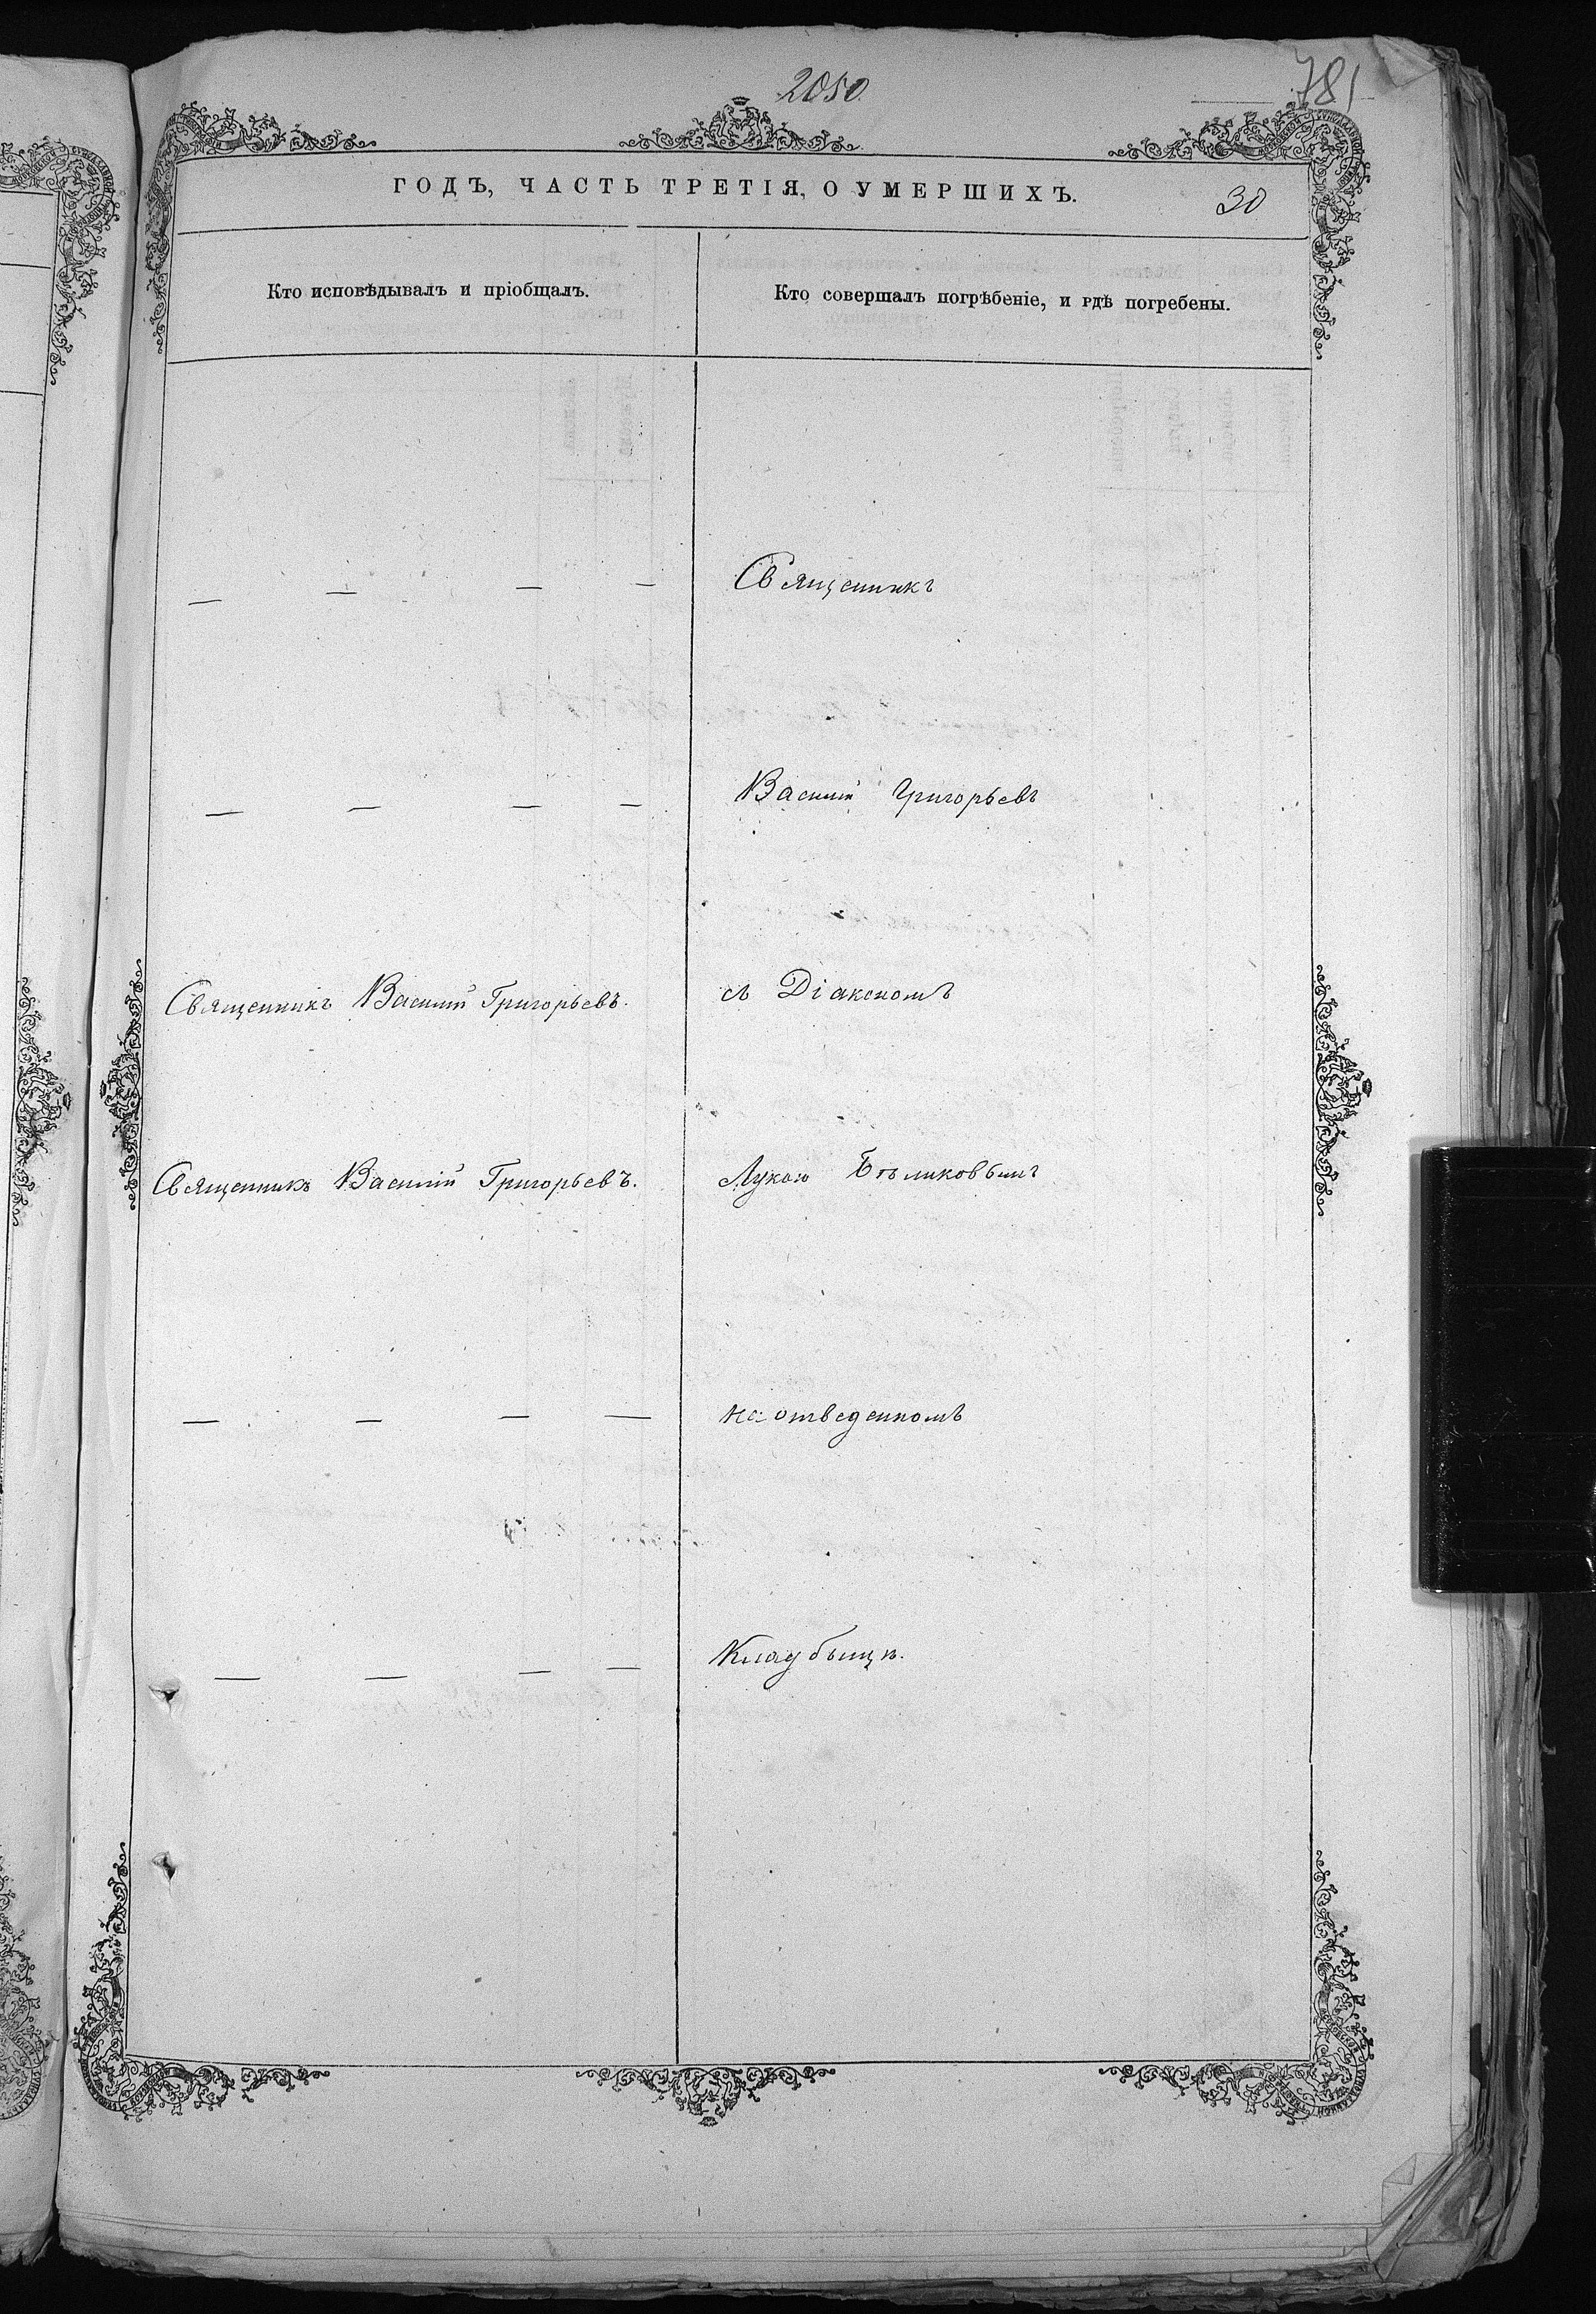 2050
781
ГОДЪ, ЧАСТЬ ТРЕТІЯ, О УМЕРШИХЪ.
30
Кто исповѣдывалъ и пріобщалъ.
Кто совершалъ погрѣбеніе, и гдѣ погребены.
— — — — Священникъ
— — — — Василій Григорьевъ
Священникъ Василій Григорьевъ. съ Діакономъ
Священникъ Василій Григорьевъ. Лукою Бѣликовымъ
— — — — на отведенномъ
— — — — Кладбищѣ.